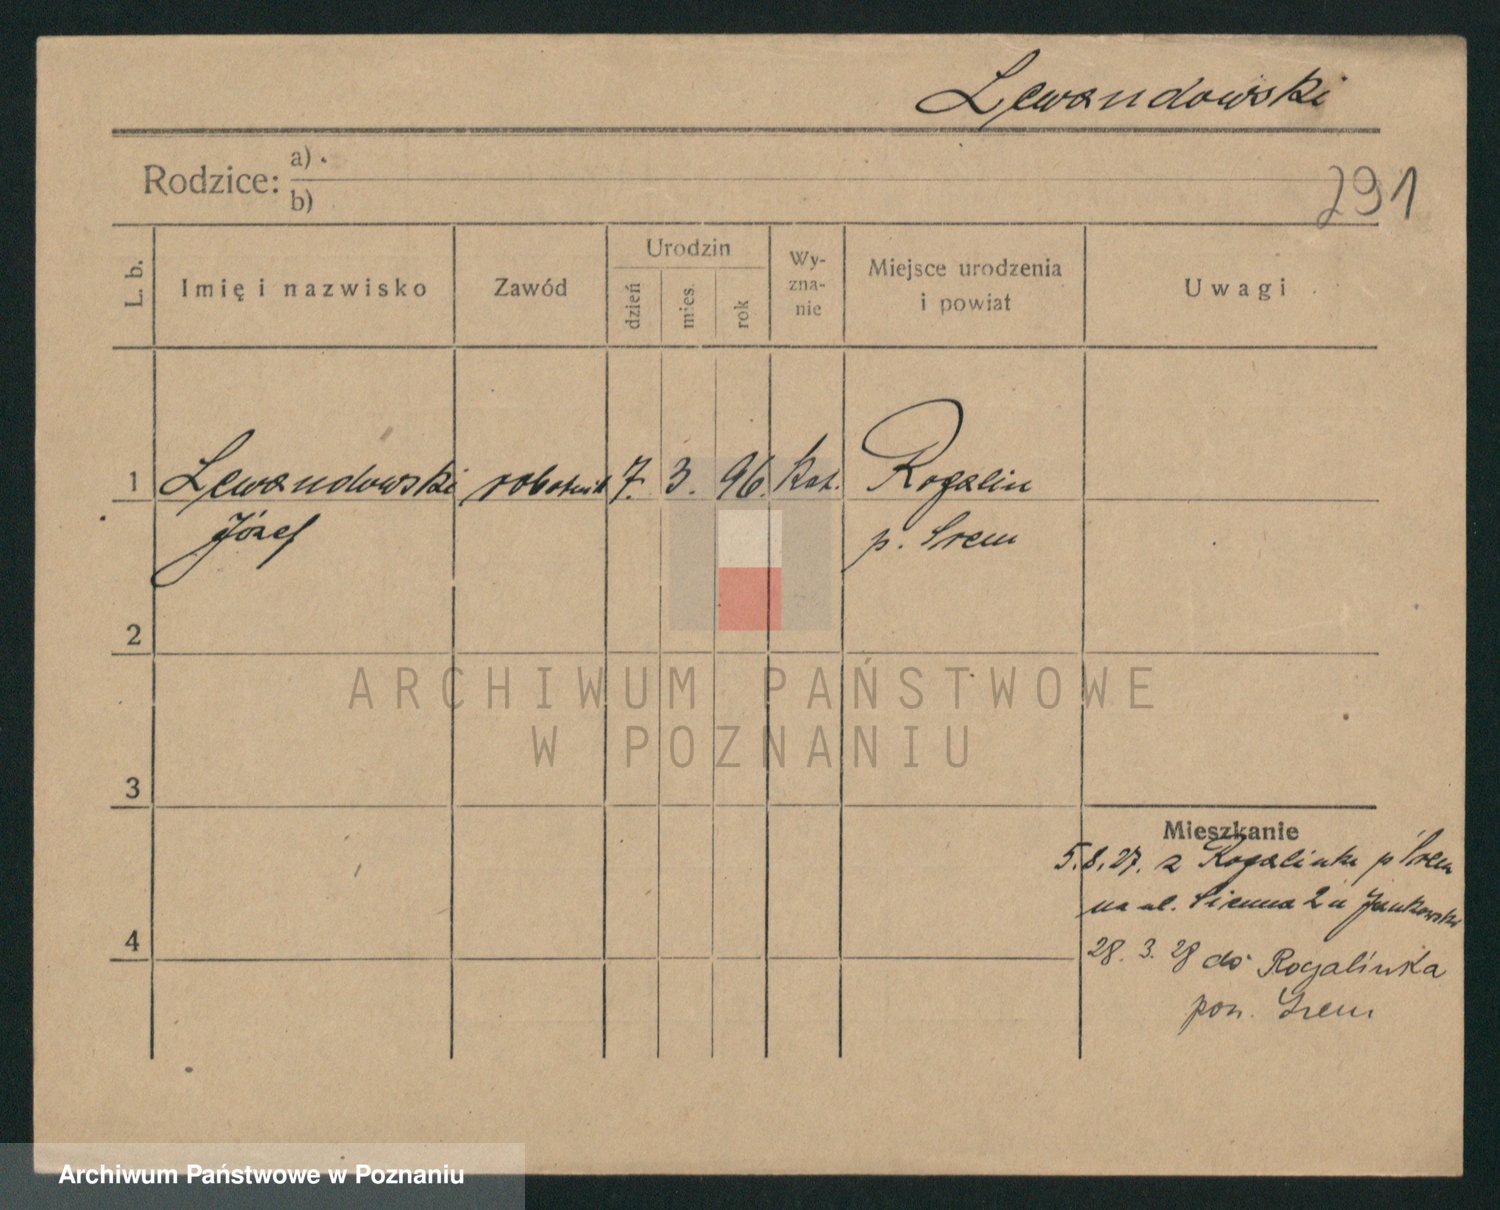 Lewandowski
Rodzice: a)
b)
291
L. b.
Imię i nazwisko
Zawód
Urodzin
dzień
mies.
rok
Wy-
zna-
nie
Miejsce urodzenia
i powiat
Uwagi
1 Lewandowski robotnik 7. 3. 96. kat. Rogalin
Józef p. Śrem
2
3
4
Mieszkanie
5.8.27. z Rogalinka p Śrem
na ul. Sienna 2 u Jankowski
28. 3. 28 do Rogalinka
pow. Śrem
ARCHIWUM PAŃSTWOWE
W POZNANIU
Archiwum Państwowe w Poznaniu